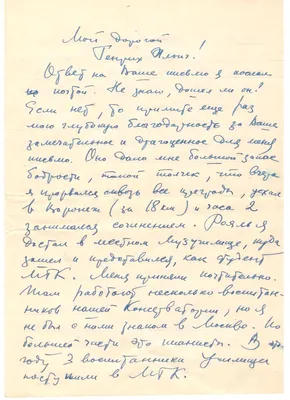 Мой дорогой
Генрих Ильич!
Ответ на Ваше письмо я послал
по почтой. Не знаю, дошел ли он?
Если нет, то примите еще раз
мою глубокую благодарность за Ваше
замечательное и драгоценное для меня
письмо. Оно дало мне большой запас
бодрости, такой толчек, что вчера
я прорвался сквозь все преграды, уехал
в Воронеж (за 18 км) и часа 2
занимался сочинением. Рояль я
достал в местном Музучилище, куда
зашел и представился, как студент
МГК. Меня приняли почтительно.
Там работают несколько воспитан-
ников нашей Консерватории, но я
не был с ними знаком в Москве. По
большей части это пианисты. В этом
году 3 воспитанника училища
поступили в МГК.